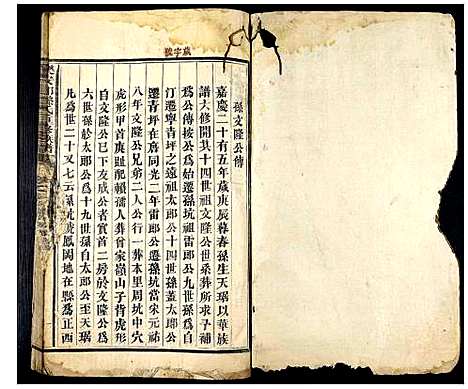 歲字號
孫文隆公傳
嘉慶二十有五年歲庚辰暮春孫生天琚以華族
譜大修開其十四世祖文隆公世系葬所求予補
為公傳按公為始遷祖太郎公十四世孫其孫公自
汀遷寧青坪之遠祖太郎公十四世孫蓋太郎公
遷青坪在唐同光二年雷郎公遷孫坑當宋元祐
八年文隆公兄弟二人公行一葬本里周坑中穴
虎形甲首庚趾配賴孺人葬曾家嶺山子背虎形
自文隆公已下友成公者實首二房於文隆公為
六世孫於太郎公為十九世孫自太郎公至天琚
凡為世二十又七云孫坑號鳳岡地在縣為正西